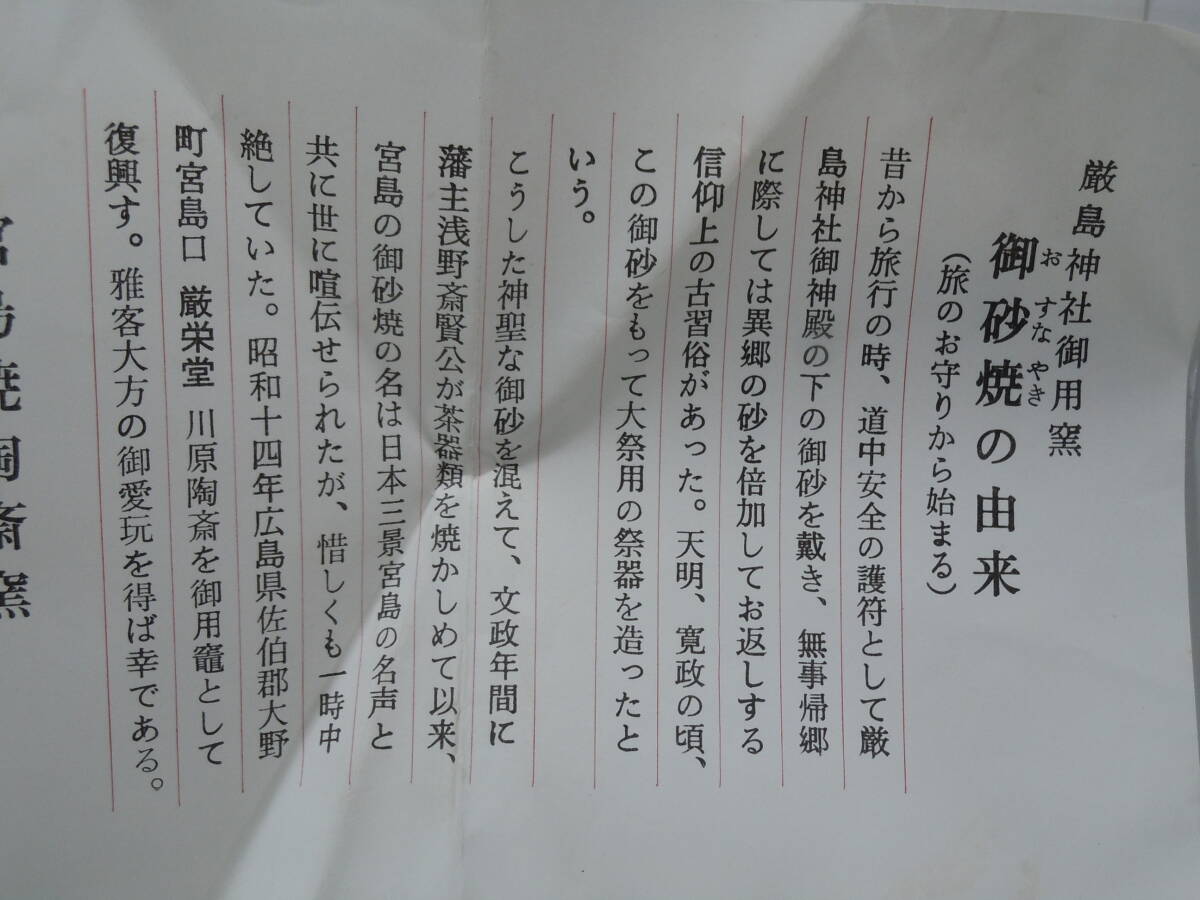 厳島神社御用窯
御砂焼の由来
お すな やき
(旅のお守りから始まる)
昔から旅行の時、道中安全の護符として厳
島神社御神殿の下の御砂を戴き、無事帰郷
に際しては異郷の砂を倍加してお返しする
信仰上の古習俗があった。天明、寛政の頃、
この御砂をもって大祭用の祭器を造ったと
いう。
こうした神聖な御砂を混えて、文政年間に
藩主浅野斎賢公が茶器類を焼かしめて以来、
宮島の御砂焼の名は日本三景宮島の名声と
共に世に喧伝せられたが、惜しくも一時中
絶していた。昭和十四年広島県佐伯郡大野
町宮島口 厳栄堂 川原陶斎を御用竈として
復興す。雅客大方の御愛玩を得ば幸である。
宮島焼陶斎窯